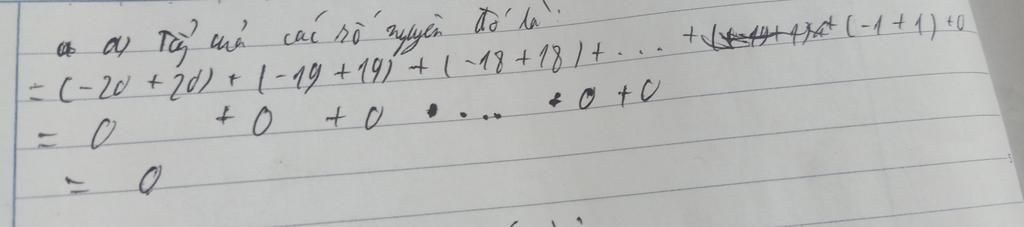 a) Tổng của các số nguyên đó là:
= (-20 + 20) + (-19 + 19) + (-18 + 18) + ... + (-1 + 1) + 0
= 0 + 0 + 0 + ... + 0 + 0
= 0